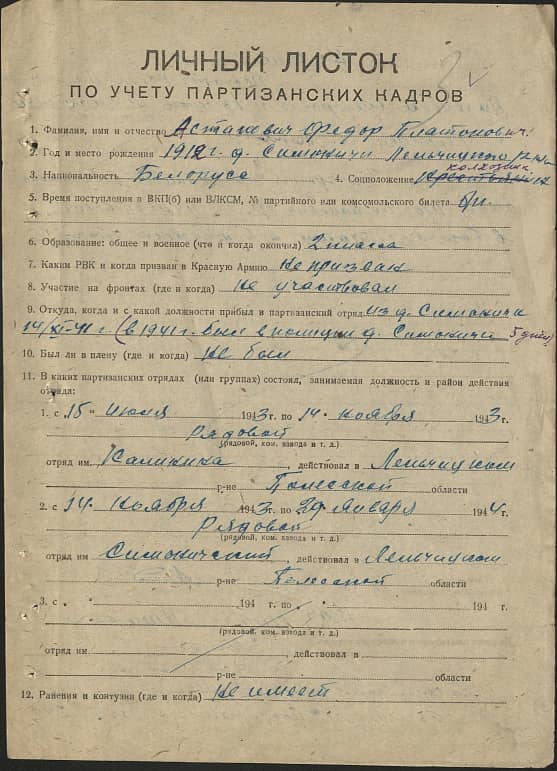 ЛИЧНЫЙ ЛИСТОК
ПО УЧЕТУ ПАРТИЗАНСКИХ КАДРОВ
1. Фамилия, имя и отчество Асташевич Федор Платонович
2. Год и место рождения 1912 г. д. Симоничи Лельчицкого р-на
3. Национальность Белорус 4. Соцположение колхозник
5. Время поступления в ВКП(б) или ВЛКСМ, № партийного или комсомольского билета б/п.
6. Образование: общее и военное (что и когда окончил) 2 класса
7. Каким РВК и когда призван в Красную Армию Не призван
8. Участие на фронтах (где и когда) Не участвовал
9. Откуда, когда и с какой должности прибыл в партизанский отряд из д. Симоничи
(в 1941 г. был в полиции д. Симоничи 5 дней)
10. Был ли в плену (где и когда) Не был
11. В каких партизанских отрядах (или группах) состоял, занимаемая должность и район действия
отряда:
1. с „15“ Июля 1943 г. по 14 ноября 1943 г.
Рядовой
(рядовой, ком. взвода и т. д.)
отряд им. Калинина, действовал в Лельчицком
р-не Полесской области
2. с 14 ноября 1943 г. по 29 Января 1944 г.
Рядовой
(рядовой, ком. взвода и т. д.)
отряд им. Симоничский, действовал в Лельчицком
р-не Полесской области
3. с 194 г. по 194 г.
(рядовой, ком. взвода и т. д.)
отряд им. , действовал в
р-не области
12. Ранения и контузии (где и когда) Не имеет